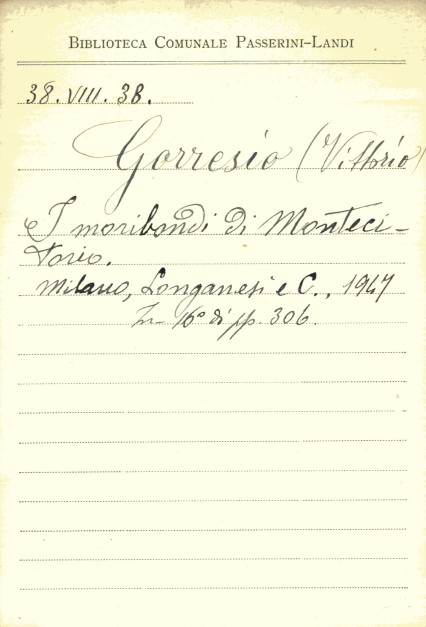 BIBLIOTECA COMUNALE PASSERINI-LANDI
38. VIII. 38.
Gorresio (Vittorio)
I moribondi di Monteci-
torio.
Milano, Longanesi e C., 1947
In- 16° di pp. 306.